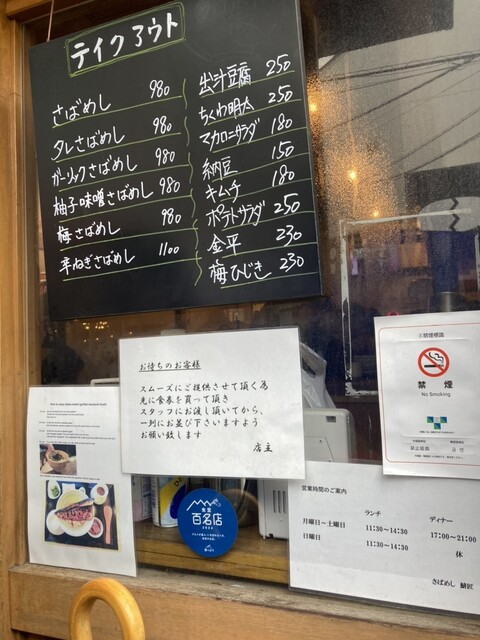 テイクアウト
さばめし 980
タレさばめし 980
ガーリックさばめし 980
柚子味噌さばめし 980
梅さばめし 980
辛ねぎさばめし 1100
出汁豆腐 250
ちくわ明太 250
マカロニサラダ 180
納豆 150
キムチ 180
ポテトサラダ 250
金平 230
梅ひじき 230
お待ちのお客様
スムーズにご提供させて頂く為
先に食券を買って頂き
スタッフにお渡し頂いてから、
一列にお並び下さいますよう
お願い致します
店主
禁煙
No Smoking
食堂
百名店
営業時間のご案内
ランチ ディナー
月曜日～土曜日 11:30~14:30 17:00~21:00
日曜日 11:30~14:30 休
さばめし 鯖匠